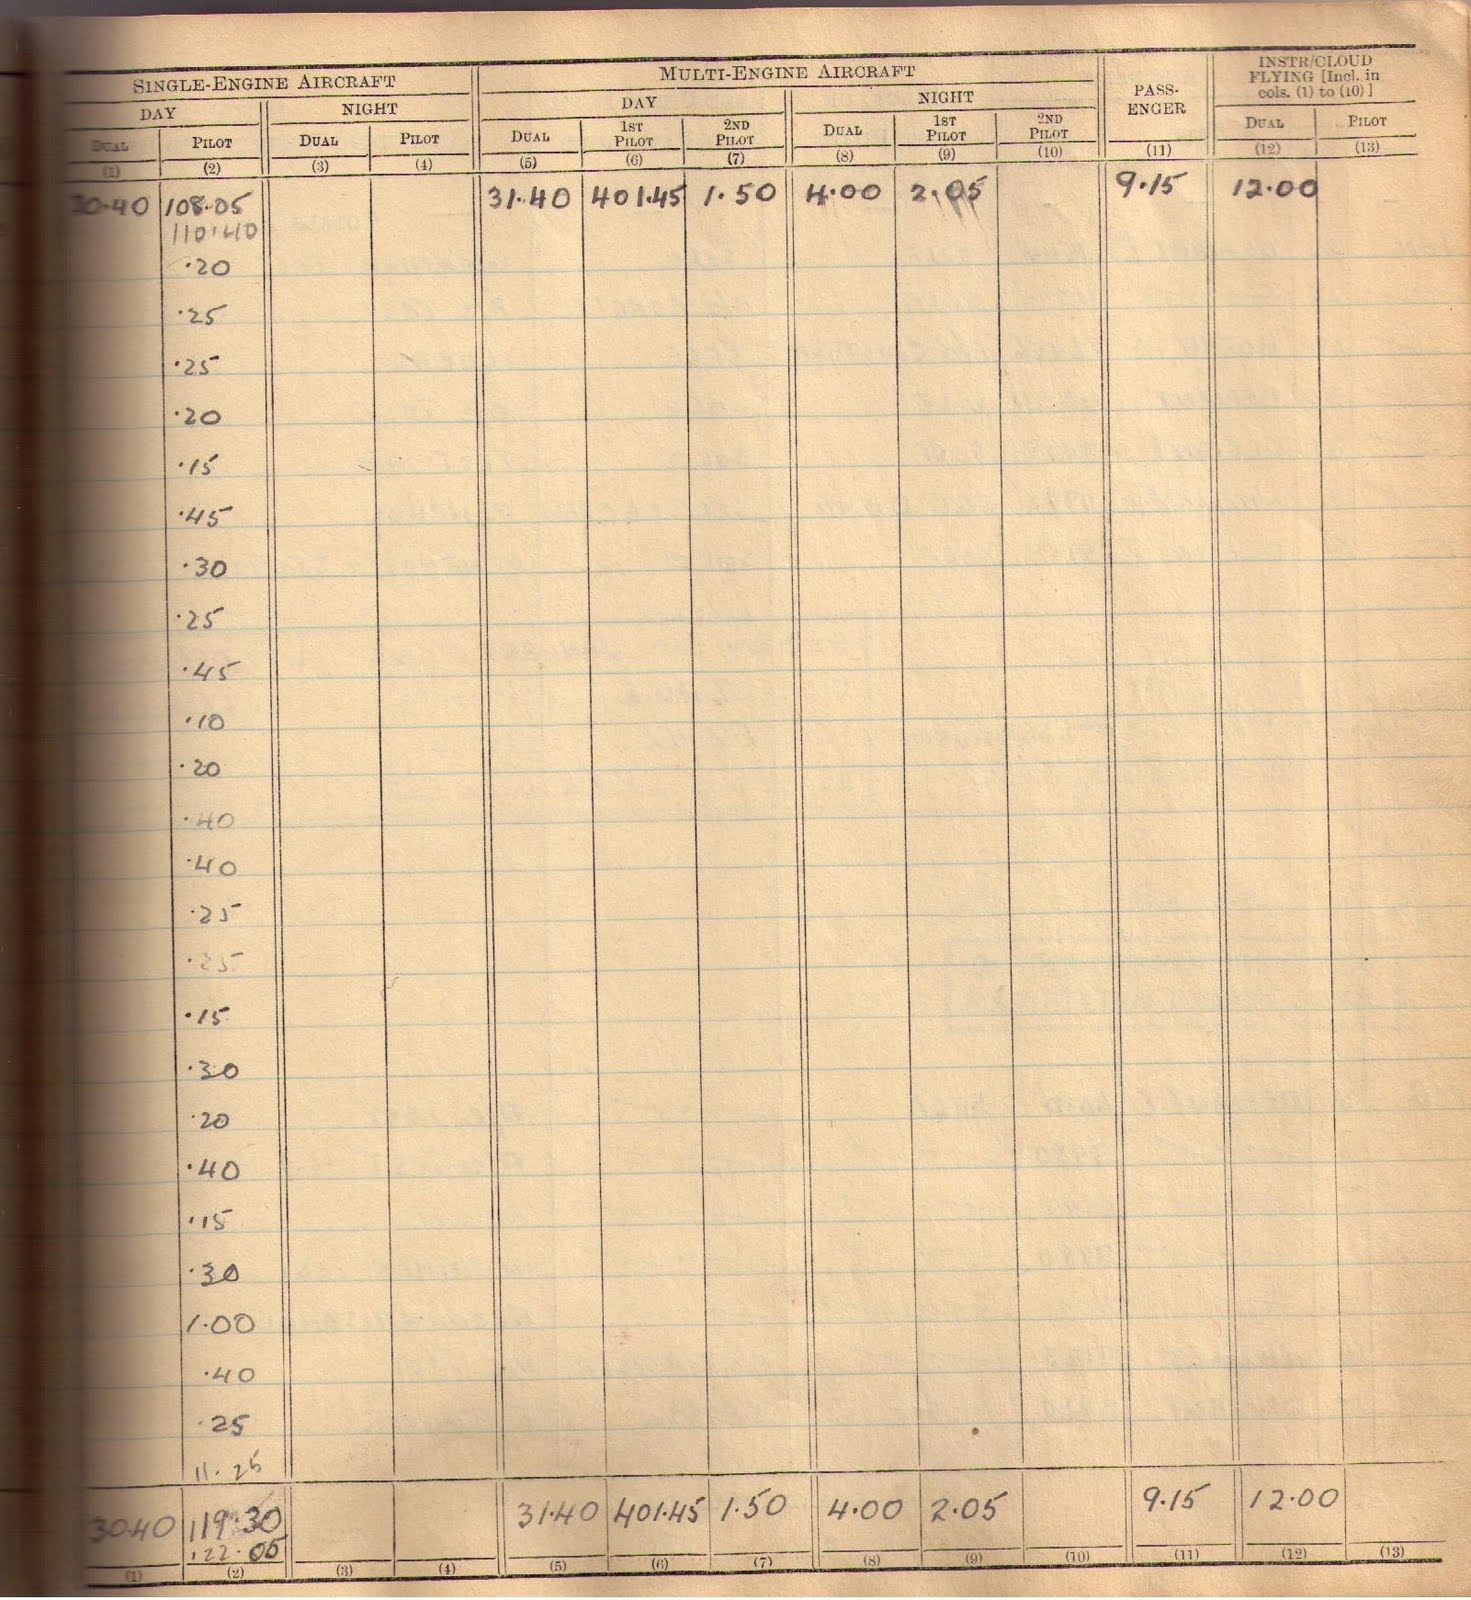 SINGLE-ENGINE AIRCRAFT MULTI-ENGINE AIRCRAFT PASS-ENGER INSTR/CLOUD FLYING [Incl. in cols. (1) to (10)]
DAY NIGHT DAY NIGHT
DUAL PILOT DUAL PILOT DUAL 1ST PILOT 2ND PILOT DUAL 1ST PILOT 2ND PILOT DUAL PILOT
(1) (2) (3) (4) (5) (6) (7) (8) (9) (10) (11) (12) (13)
30.40 108.05 31.40 401.45 1.50 4.00 2.05 9.15 12.00
110.40
.20
.25
.25
.20
.15
.45
.30
.25
.45
.10
.20
.40
.40
.25
.25
.15
.30
.20
.40
.15
.30
1.00
.40
.25
11.25
30.40 119.30 31.40 401.45 1.50 4.00 2.05 9.15 12.00
122.05
(1) (2) (3) (4) (5) (6) (7) (8) (9) (10) (11) (12) (13)